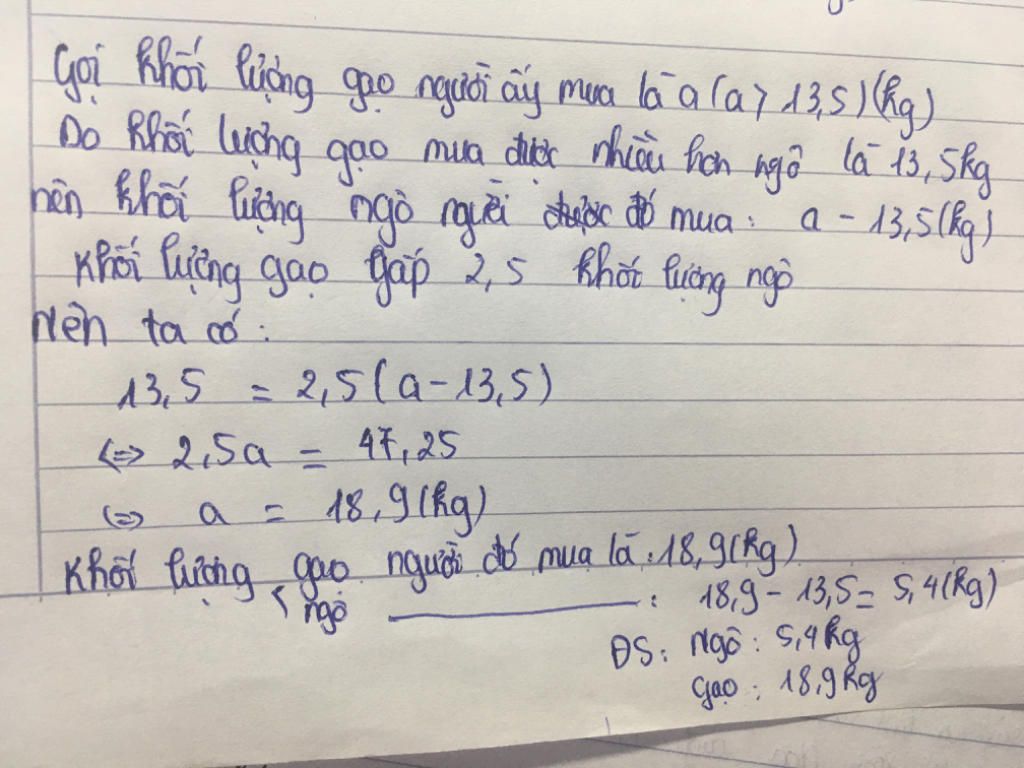 Gọi khối lượng gạo người ấy mua là a (a > 13,5) (kg)
Do khối lượng gạo mua được nhiều hơn ngô là 13,5kg
nên khối lượng ngô người được đó mua: a - 13,5 (kg)
Khối lượng gạo gấp 2,5 khối lượng ngô
Nên ta có:
13,5 = 2,5(a - 13,5)
<=> 2,5a = 47,25
<=> a = 18,9 (kg)
Khối lượng gạo người đó mua là: 18,9 (kg)
ngô ———: 18,9 - 13,5 = 5,4 (kg)
ĐS: Ngô: 5,4kg
Gạo: 18,9kg